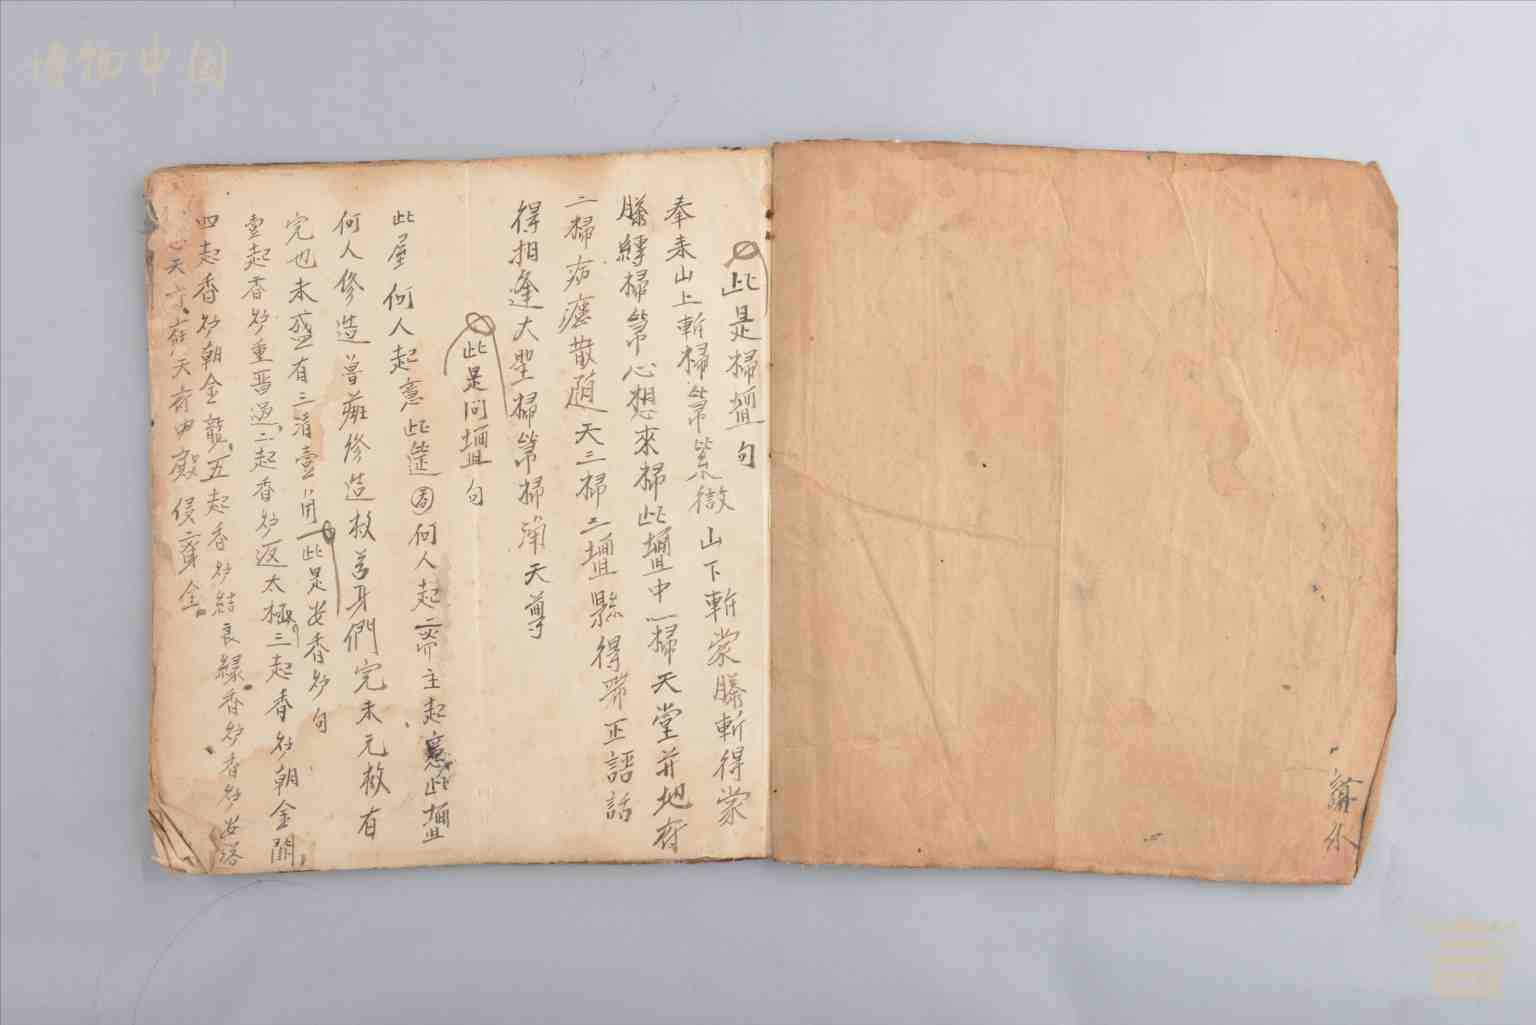 講水
此是掃壇句
奉來山上斬掃箒紫微山下斬棠藤斬得棠
藤縛掃箒心想來掃此壇中一掃天堂并地府
二掃病瘟散随天三掃三壇縣得正話
得相逢大聖掃箒掃淨天尊
此是问壇句
此屋何人起意此筵何人起齋主起意此壇
何人修造曾班修造救身們完未元救有
完也未盛有三清壹
此是安香炉句
壹起香炉重晋過二起香炉返太極三起香炉朝金闕
四起香炉朝金龍五起香炉結良緣香炉香炉安落
心天天府中殿侵齊全
博物中国